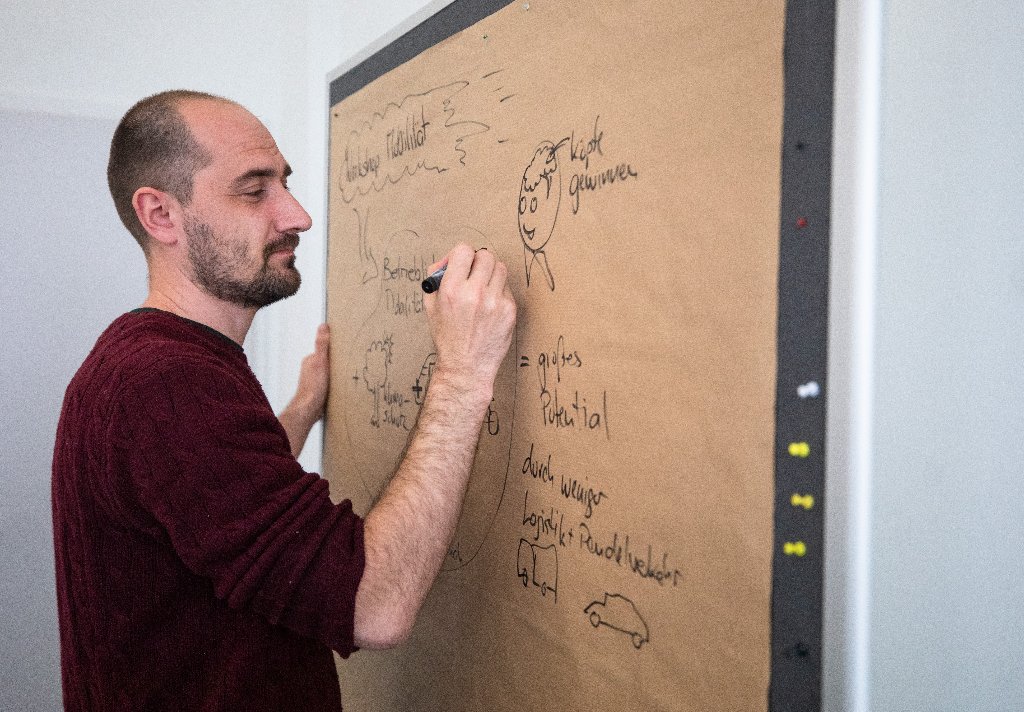 Workshop Mobilität
Köpfe
gewinnen
Betriebl
Mobilität
+ Klima-
schutz
+
= großes
Potential
durch weniger
Logistik + Pendelverkehr